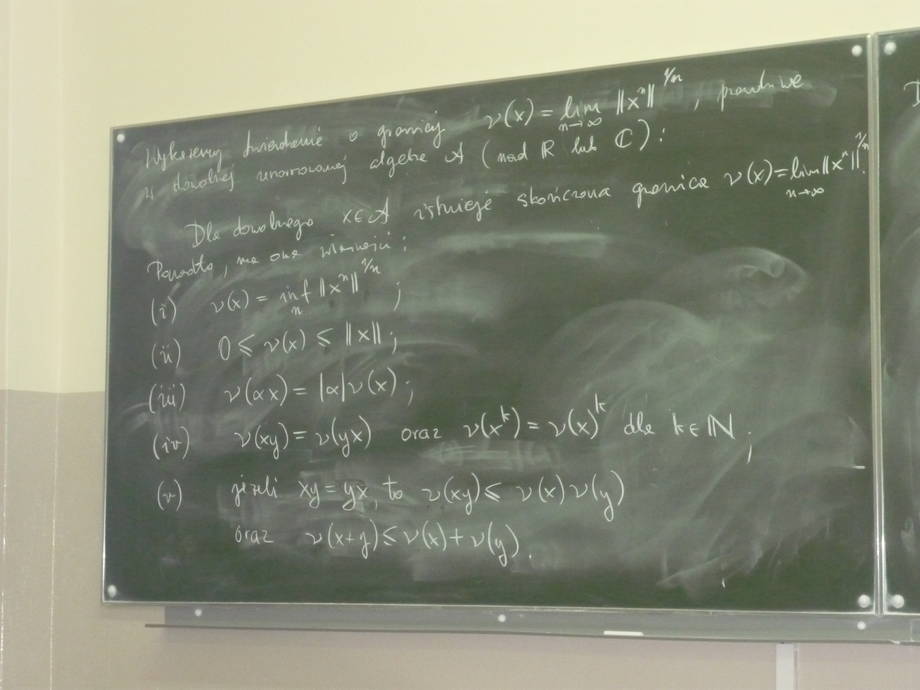 Wykażemy twierdzenie o granicy ν(x) = lim_{n→∞} ‖xⁿ‖^{1/n}, prawdziwe
w dowolnej unormowanej algebrze A (nad ℝ lub ℂ):
Dla dowolnego x∈A istnieje skończona granica ν(x) = lim_{n→∞} ‖xⁿ‖^{1/n}.
Ponadto, ma ona własności:
(i) ν(x) = inf_n ‖xⁿ‖^{1/n};
(ii) 0 ⩽ ν(x) ⩽ ‖x‖;
(iii) ν(αx) = |α|ν(x);
(iv) ν(xy) = ν(yx) oraz ν(x^k) = ν(x)^k dla k∈ℕ;
(v) jeżeli xy = yx, to ν(xy) ⩽ ν(x)ν(y)
oraz ν(x+y) ⩽ ν(x) + ν(y).